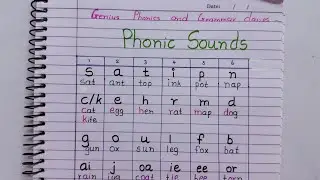 Date: /
Genius Phonics and Grammar classes
Phonic Sounds
1 2 3 4 5 6
s a t i p n
sat ant top ink pot nap
c/k e h r m d
cat egg hen rat map dog
kite
g o u l f b
gun ox sun leg fox bat
ai j oa ie ee or
rain jug coat tie bee torn